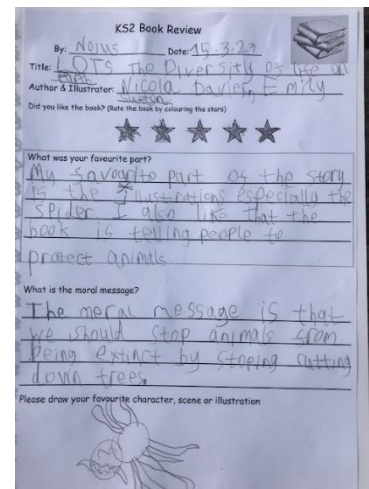 KS2 Book Review
By: Nojus Date: 15.3.23
Title: LOTS The Diversity of life on
Earth
Author & Illustrator: Nicola Davies, Emily
Sutton
Did you like the book? (Rate the book by colouring the stars)
What was your favourite part?
My favourite part of the story
is the illustrations especially the
spider. I also like that the
book is telling people to
protect animals
What is the moral message?
The moral message is that
we should stop animals from
being extinct by stoping cutting
down trees.
Please draw your favourite character, scene or illustration